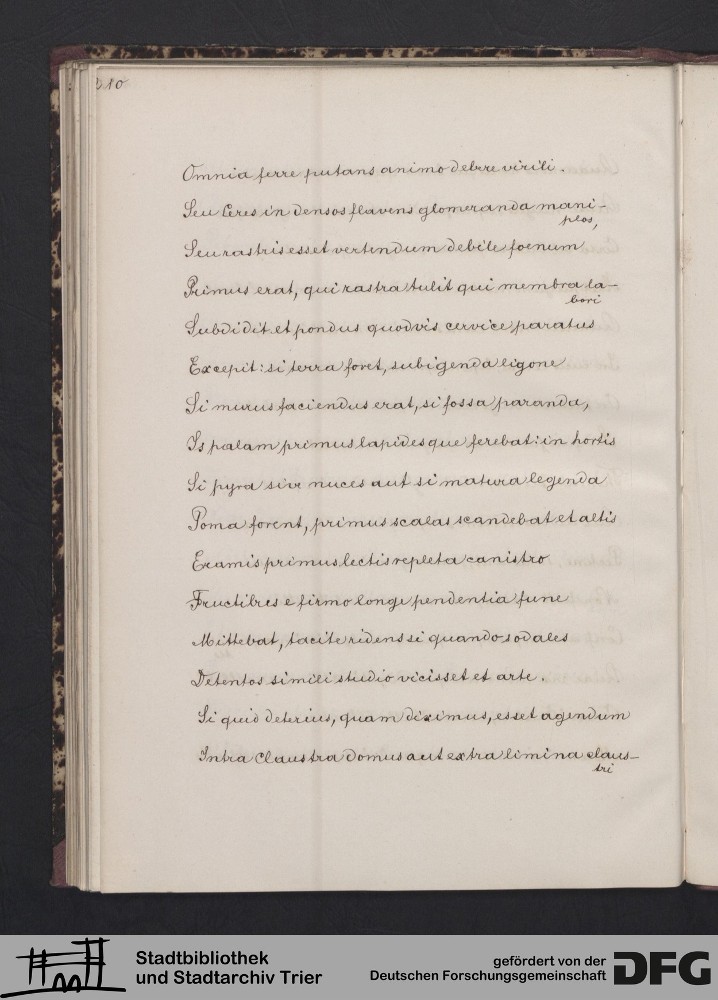 310
Omnia ferre putans animo debere virili.
Seu Ceres in densos flavens glomeranda mani-
plos,
Seu rastris esset vertendum debile foenum
Primus erat, qui rastra tulit qui membra la-
bori
Subdidit et pondus quodvis cervice paratus
Excepit: si terra foret, subigenda ligone
Si murus faciendus erat, si fossa paranda,
Is palam primus lapidesque ferebat: in hortis
Si pyra sive nuces aut si matura legenda
Poma forent, primus scalas scandebat et altis
E ramis primus lectis repleta canistro
Fructibus e firmo longe pendentia fune
Mittebat, tacite ridens si quando sodales
Detentos simili studio vicisset et arte.
Si quid deterius, quam diximus, esset agendum
Intra claustra domus aut extra limina claus-
tri
Stadtbibliothek
und Stadtarchiv Trier
gefördert von der
Deutschen Forschungsgemeinschaft
DFG